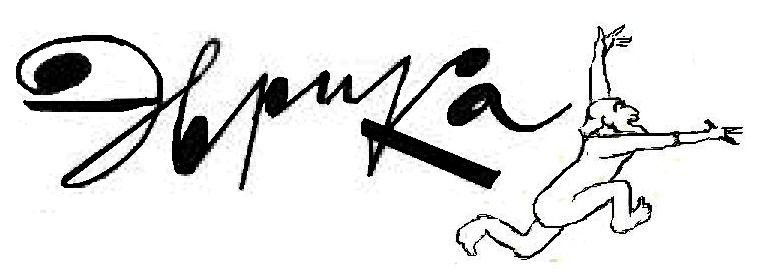 Эврика